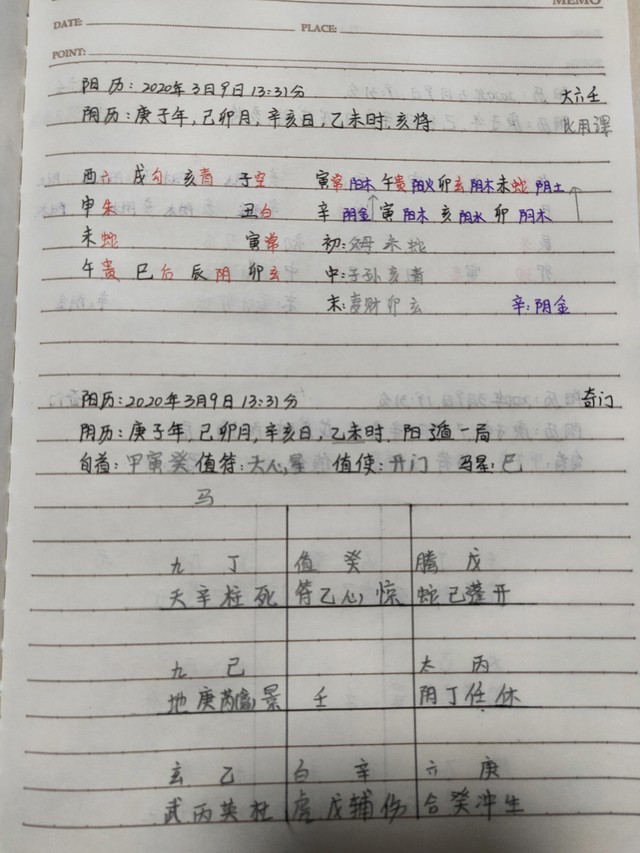 MEMO
DATE: PLACE:
POINT:
阳历：2020年3月9日13:31分 大六壬
阴历：庚子年，己卯月，辛亥日，乙未时，亥将 比用课
酉六 戌勾 亥青 子空 寅常阳木 午贵阳火 卯玄阴木 未蛇阴土
申朱 丑白 辛阴金 寅阳木 亥阴水 卯阴木
未蛇 寅常 初：父母未蛇
午贵 巳后 辰阴 卯玄 中：子孙亥青
末：妻财卯玄 辛：阴金
阳历：2020年3月9日13:31分 奇门
阴历：庚子年，己卯月，辛亥日，乙未时，阳遁一局
旬首：甲寅癸 值符：天心星 值使：开门 马星：巳
马
九 丁 值 癸 腾 戊
天辛柱死 符乙心惊 蛇己蓬开
九 己 太 丙
地庚芮禽景 壬 阴丁任休
玄 乙 白 辛 六 庚
武丙英杜 虎戊辅伤 合癸冲生